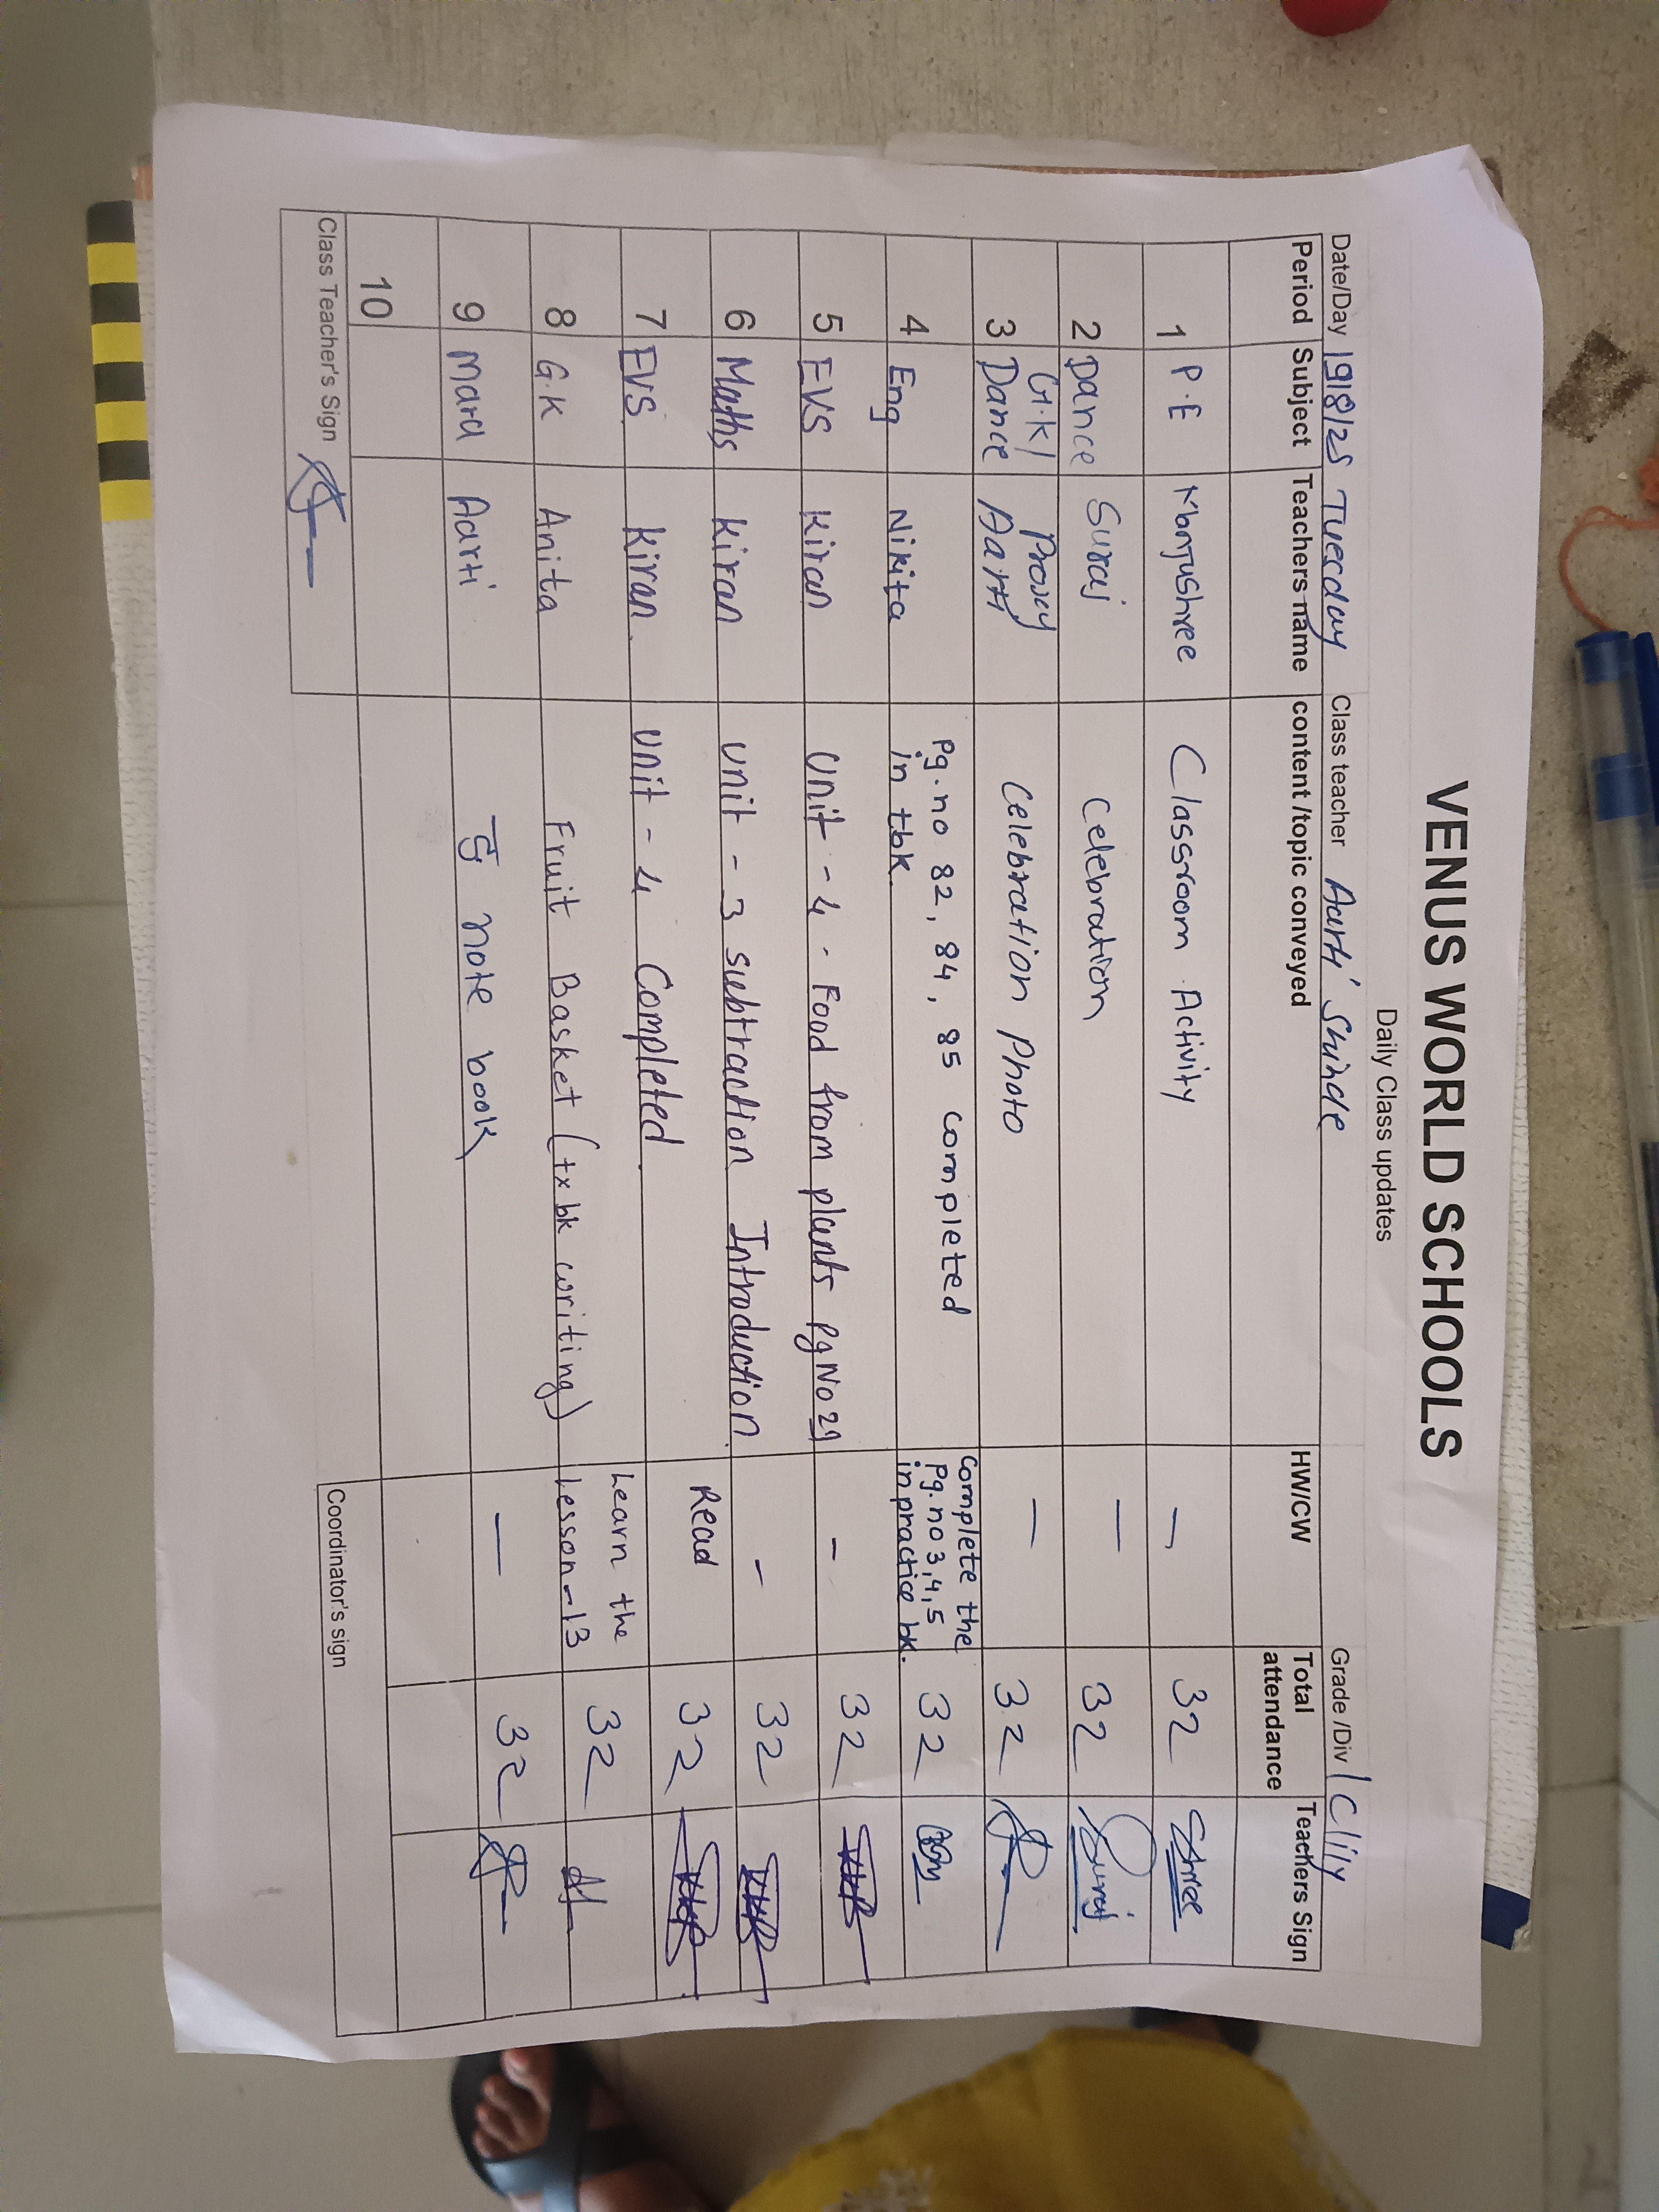 VENUS WORLD SCHOOLS
Daily Class updates
Date/Day 19/8/25 Tuesday Class teacher Aarti Shinde Grade /Div 1 Clily
Period Subject Teachers name content /topic conveyed HW/CW Total attendance Teachers Sign
1 P.E Manjushree Classroom Activity — 32 Shree
2 Dance Suraj Celebration — 32 Suraj
3 G.k/ Dance Proxy Aarti Celebration Photo — 32
4 Eng Nikita Pg.no 82, 84, 85 completed in tbk. Complete the Pg.no 3,4,5 in practice bk. 32
5 EVS Kiran Unit - 4 - Food from plants pg No 29 - 32
6 Maths Kiran Unit - 3 subtraction Introduction - 32
7 EVS Kiran Unit - 4 Completed. Read 32
8 G.K Anita Fruit Basket (tx bk writing) Learn the Lesson-13 32
9 Mara Aarti note book — 32
10
Class Teacher's Sign
Coordinator's sign